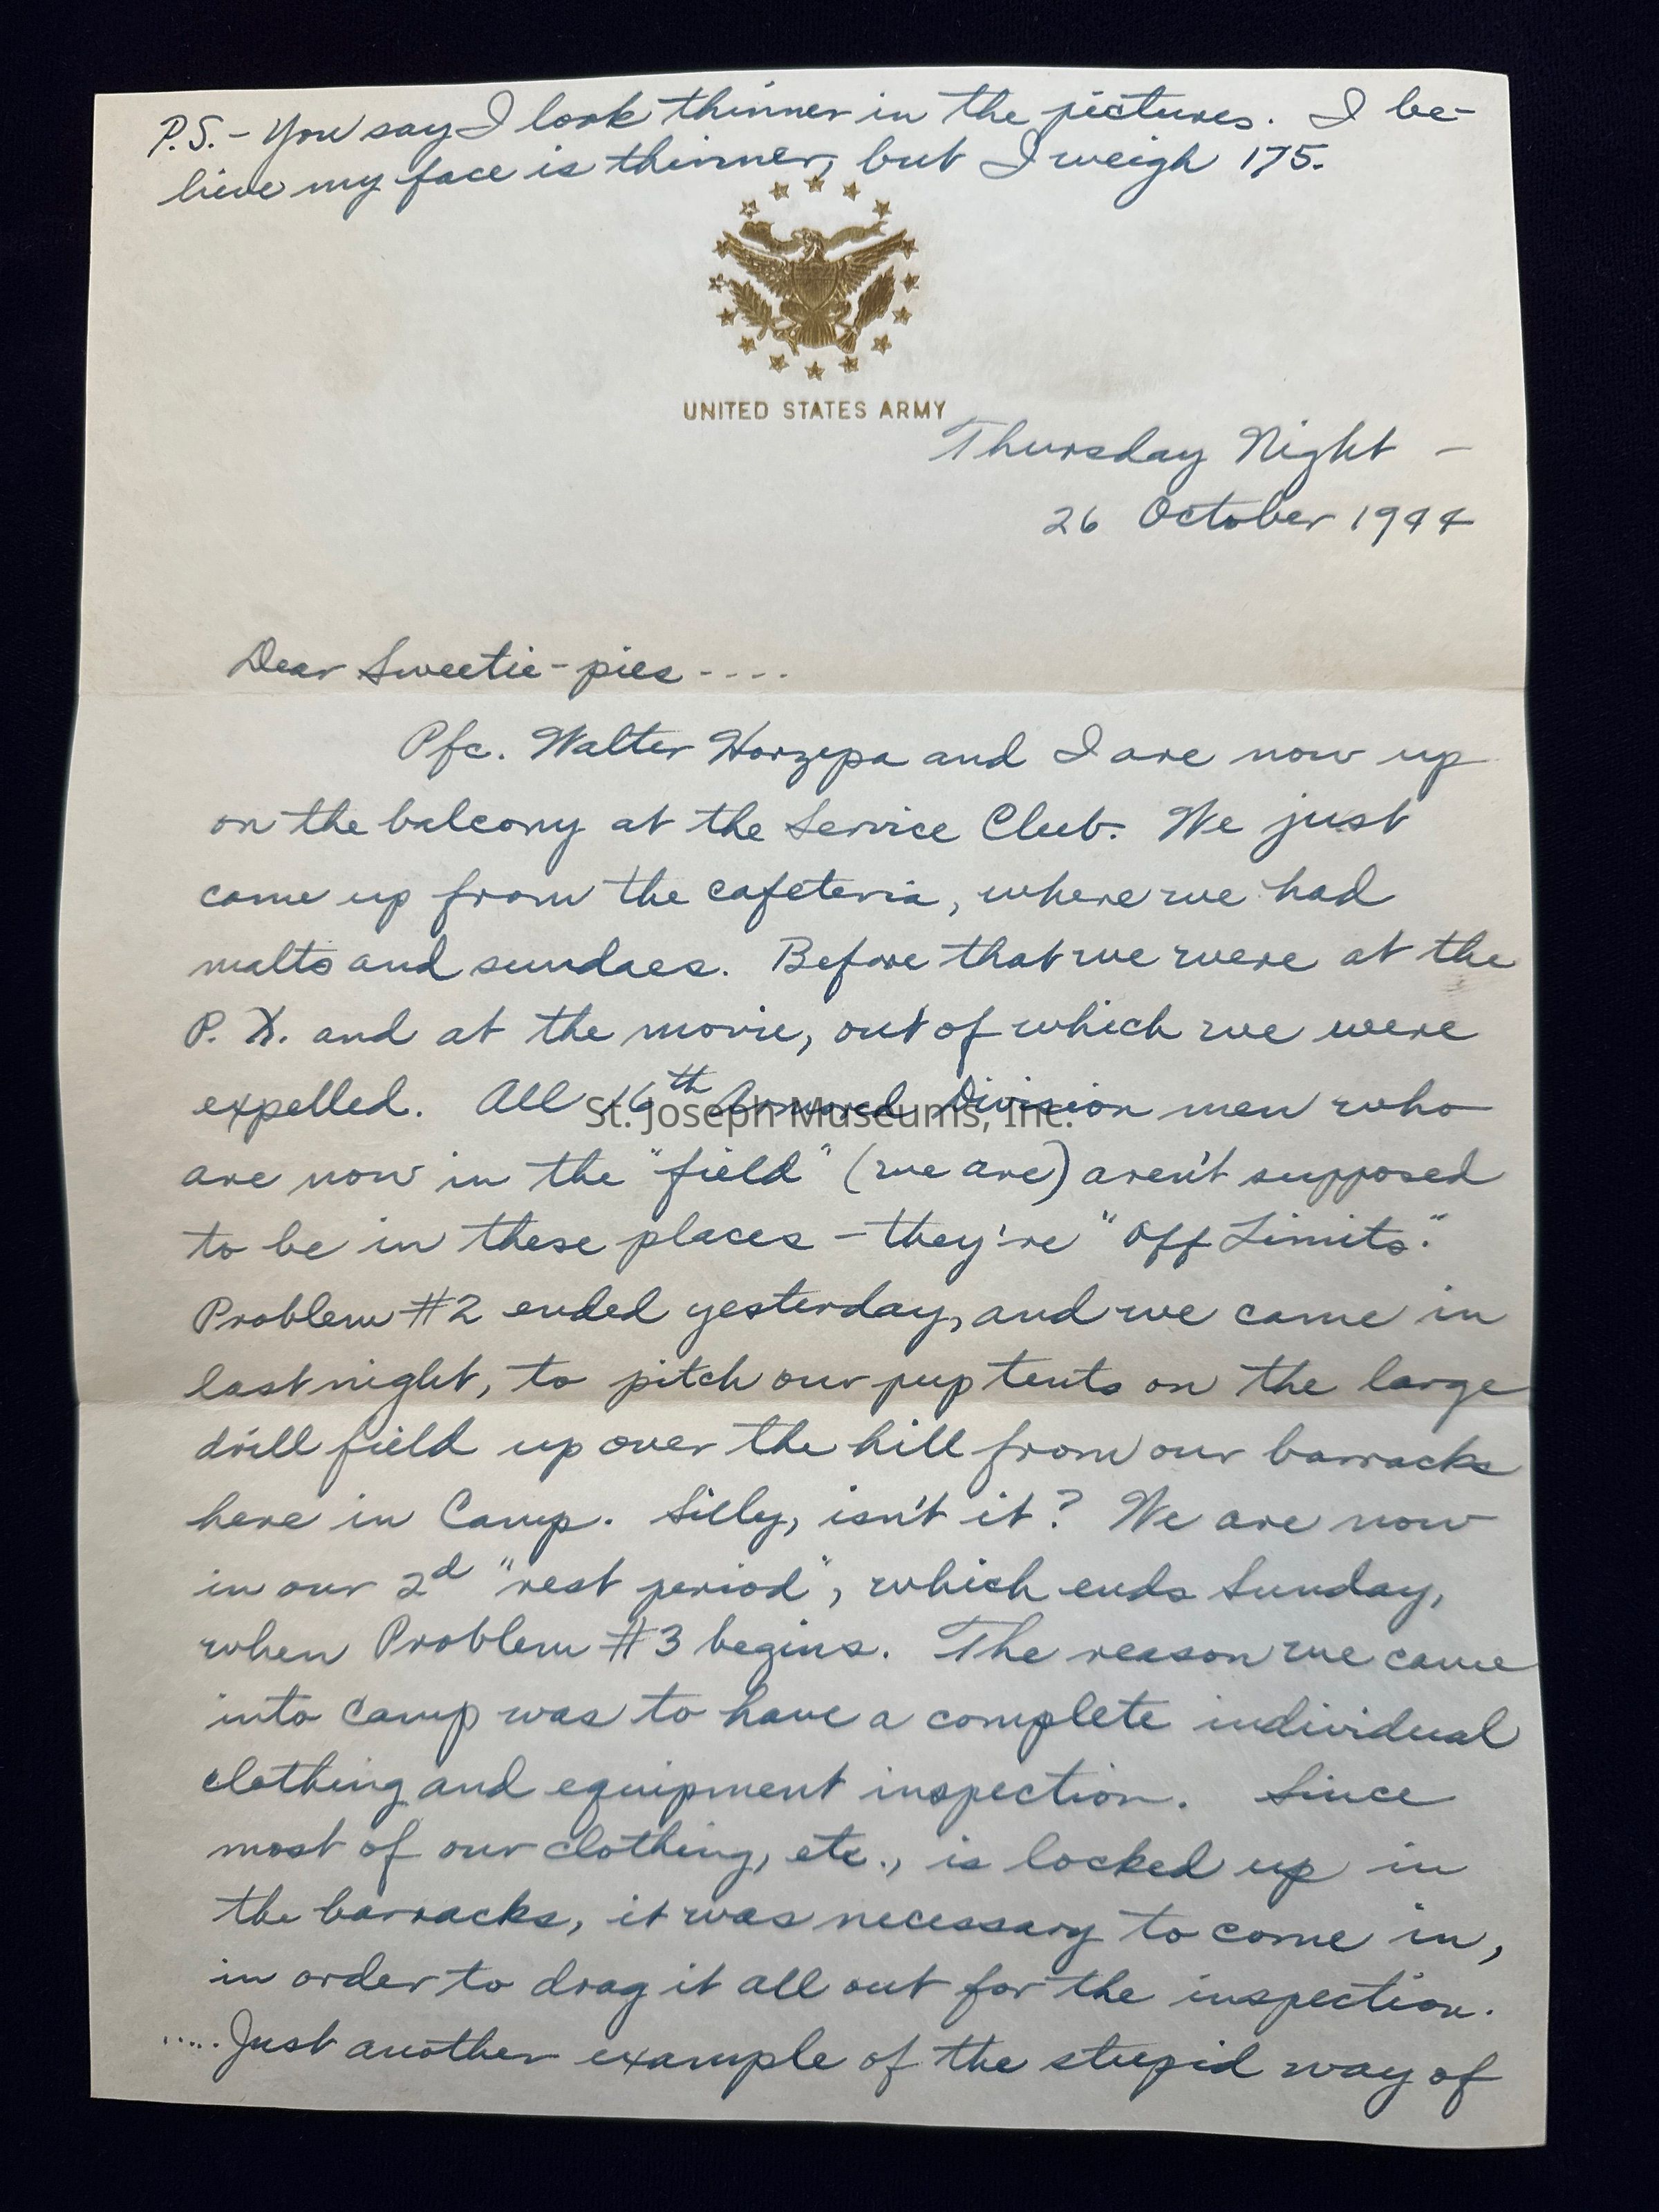 P.S. - You say I look thinner in the pictures. I be-
lieve my face is thinner, but I weigh 175.
UNITED STATES ARMY
Thursday Night -
26 October 1944
Dear Sweetie-pies ----
Pfc. Walter Horzepa and I are now up
on the balcony at the Service Club. We just
came up from the cafeteria, where we had
malts and sundaes. Before that we were at the
P. X. and at the movie, out of which we were
expelled. All 16th Armored Division men who
St. Joseph Museums, Inc.
are now in the "field" (we are) aren't supposed
to be in these places - they're "Off Limits."
Problem #2 ended yesterday, and we came in
last night, to pitch our pup tents on the large
drill field up over the hill from our barracks
here in Camp. Silly, isn't it? We are now
in our 2d "rest period", which ends Sunday,
when Problem #3 begins. The reason we came
into Camp was to have a complete individual
clothing and equipment inspection. Since
most of our clothing, etc., is locked up in
the barracks, it was necessary to come in,
in order to drag it all out for the inspection.
.....Just another example of the stupid way of